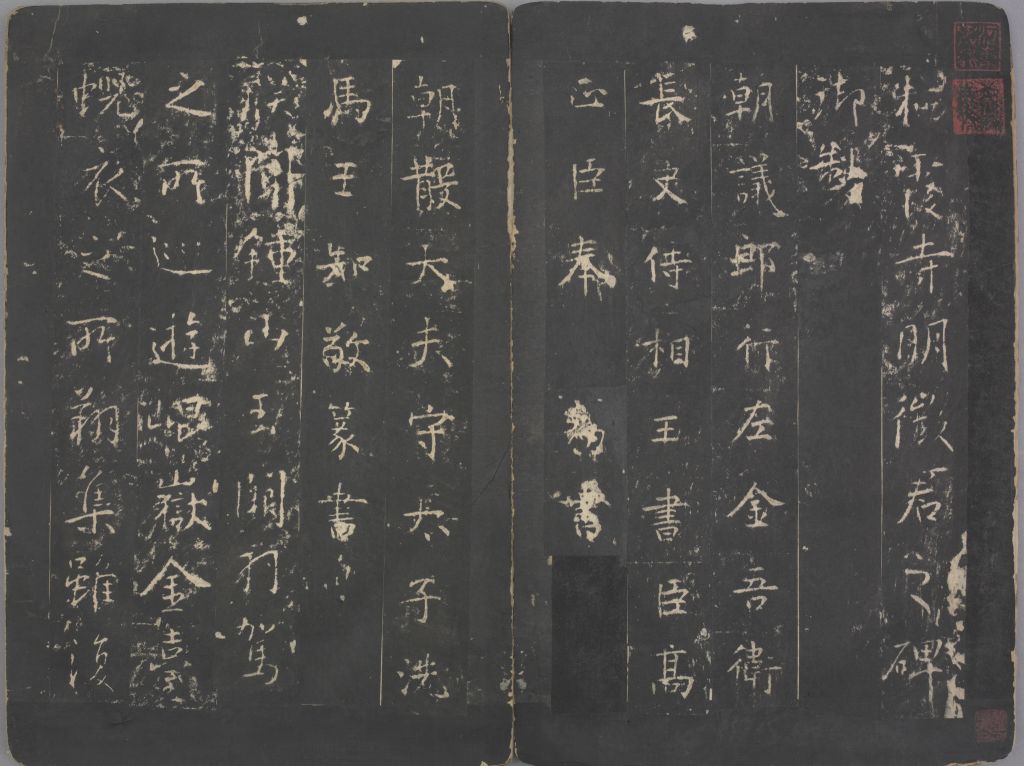 寺明徵君之碑
御製
朝議郎行左金吾衛
長史侍相王書臣高
正臣奉 書
朝散大夫守太子洗
馬王知敬篆書
朕聞鍾山玉闕羽駕
之所巡遊崐嶽金臺
蜺衣之所翔集雖復